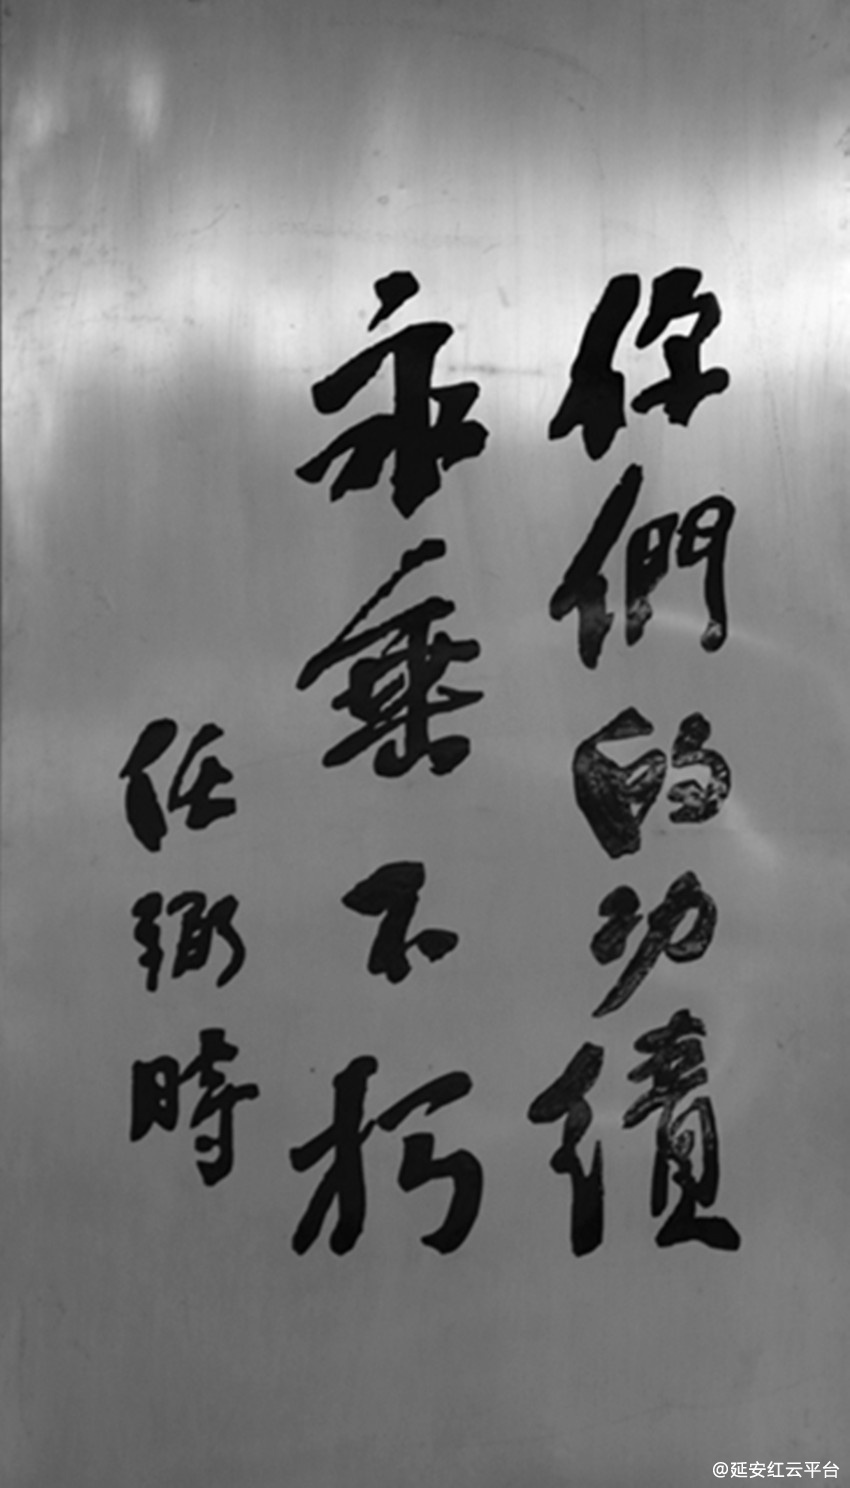 你們的功績
永垂不朽
任弼時
@延安红云平台